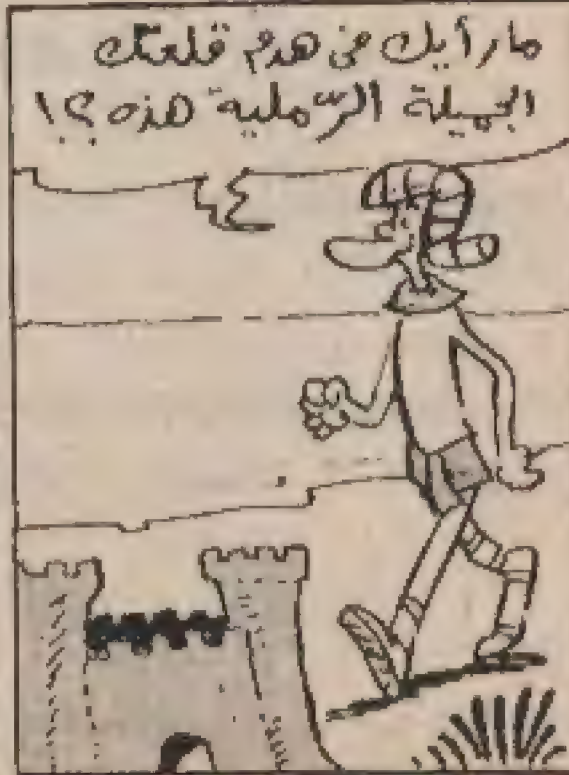 ما رأيك في هدم قلعتك
الجميلة الرّملية هذه ؟!